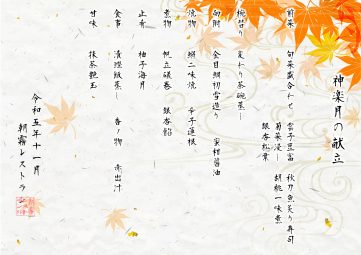 神楽月の献立
前菜 旬菜盛合わせ 雲子豆富 秋刀魚炙り寿司
菊菜浸し 胡桃一味煮
銀杏松葉
椀替り 変わり茶碗蒸し
向附 金目鯛切雪造り 蜜柑醤油
焼物 鰤二味焼 辛子蓮根
煮物 帆立磯巻 銀杏餡
止肴 柚子海月
食事 漬理飯蒸し 香ノ物 赤出汁
甘味 抹茶艶玉
令和五年十一月
朝霧レストラ